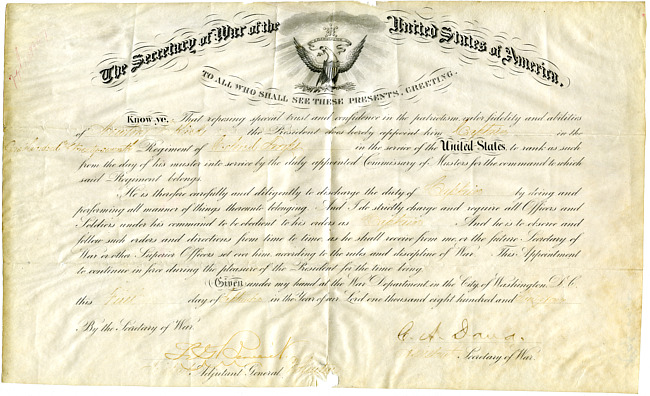 The Secretary of War of the United States of America.
TO ALL WHO SHALL SEE THESE PRESENTS, GREETING.
Know ye, That reposing special trust and confidence in the patriotism, valor fidelity and abilities
of the President does hereby appoint him Captain in the
Regiment of Colored Troops in the service of the United States, to rank as such
from the day of his muster into service by the duly appointed Commissary of Musters for the command to which
said Regiment belongs.
He is therefore carefully and diligently to discharge the duty of Captain by doing and
performing all manner of things thereunto belonging. And I do strictly charge and require all Officers and
Soldiers under his command to be obedient to his orders as Captain And he is to observe and
follow such orders and directions from time to time, as he shall receive from me, or the future Secretary of
War or other Superior Officers set over him, according to the rules and discipline of War. This Appointment
to continue in force during the pleasure of the President for the time being.
Given under my hand at the War Department in the City of Washington, D.C.
this day of in the Year of our Lord one thousand eight hundred and
By the Secretary of War.
C. A. Dana.
Secretary of War.
Adjutant General